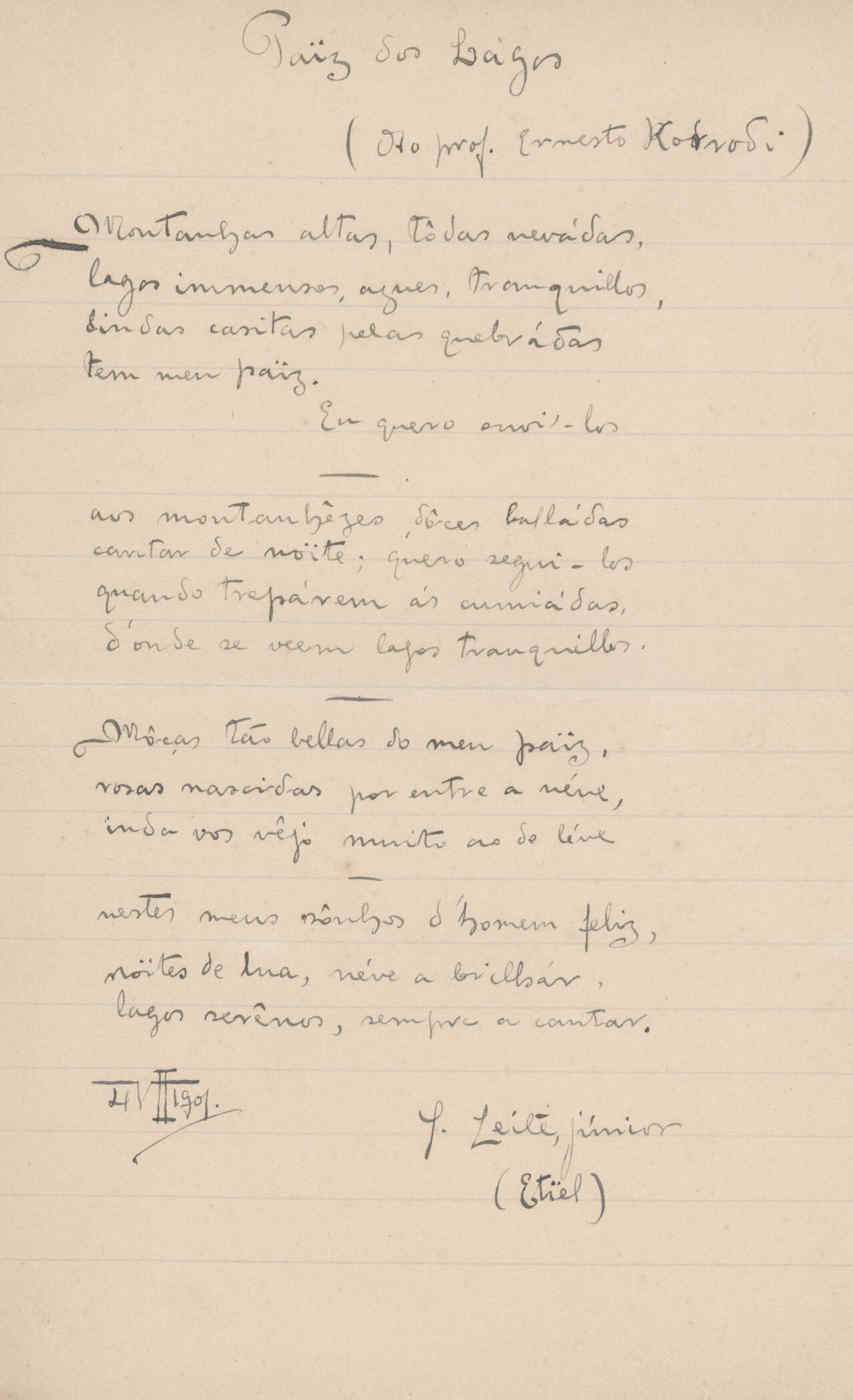 Païz dos Lágos
(Ao prof. Ernesto Korrodi)
Montanhas altas, tôdas nevádas,
lagos immensos, azues, tranquillos,
lindas casitas pelas quebrádas
tem meu païz.
Eu quero ouvi'-los
aos montanhêzes dôces balládas
cantar de nöite; quero segui-los
quando trepárem ás cumiádas,
d'onde se veem lagos tranquillos.
Môças tão bellas do meu païz,
rosas nascidas por entre a néve,
inda vos vêjo muito ao de léve
nestes meus sônhos d'homem feliz,
nöites de lua, néve a brilhár,
lagos serênos, sempre a cantar.
4 VII 1901.
J. Leite, júnior
(Etïel)